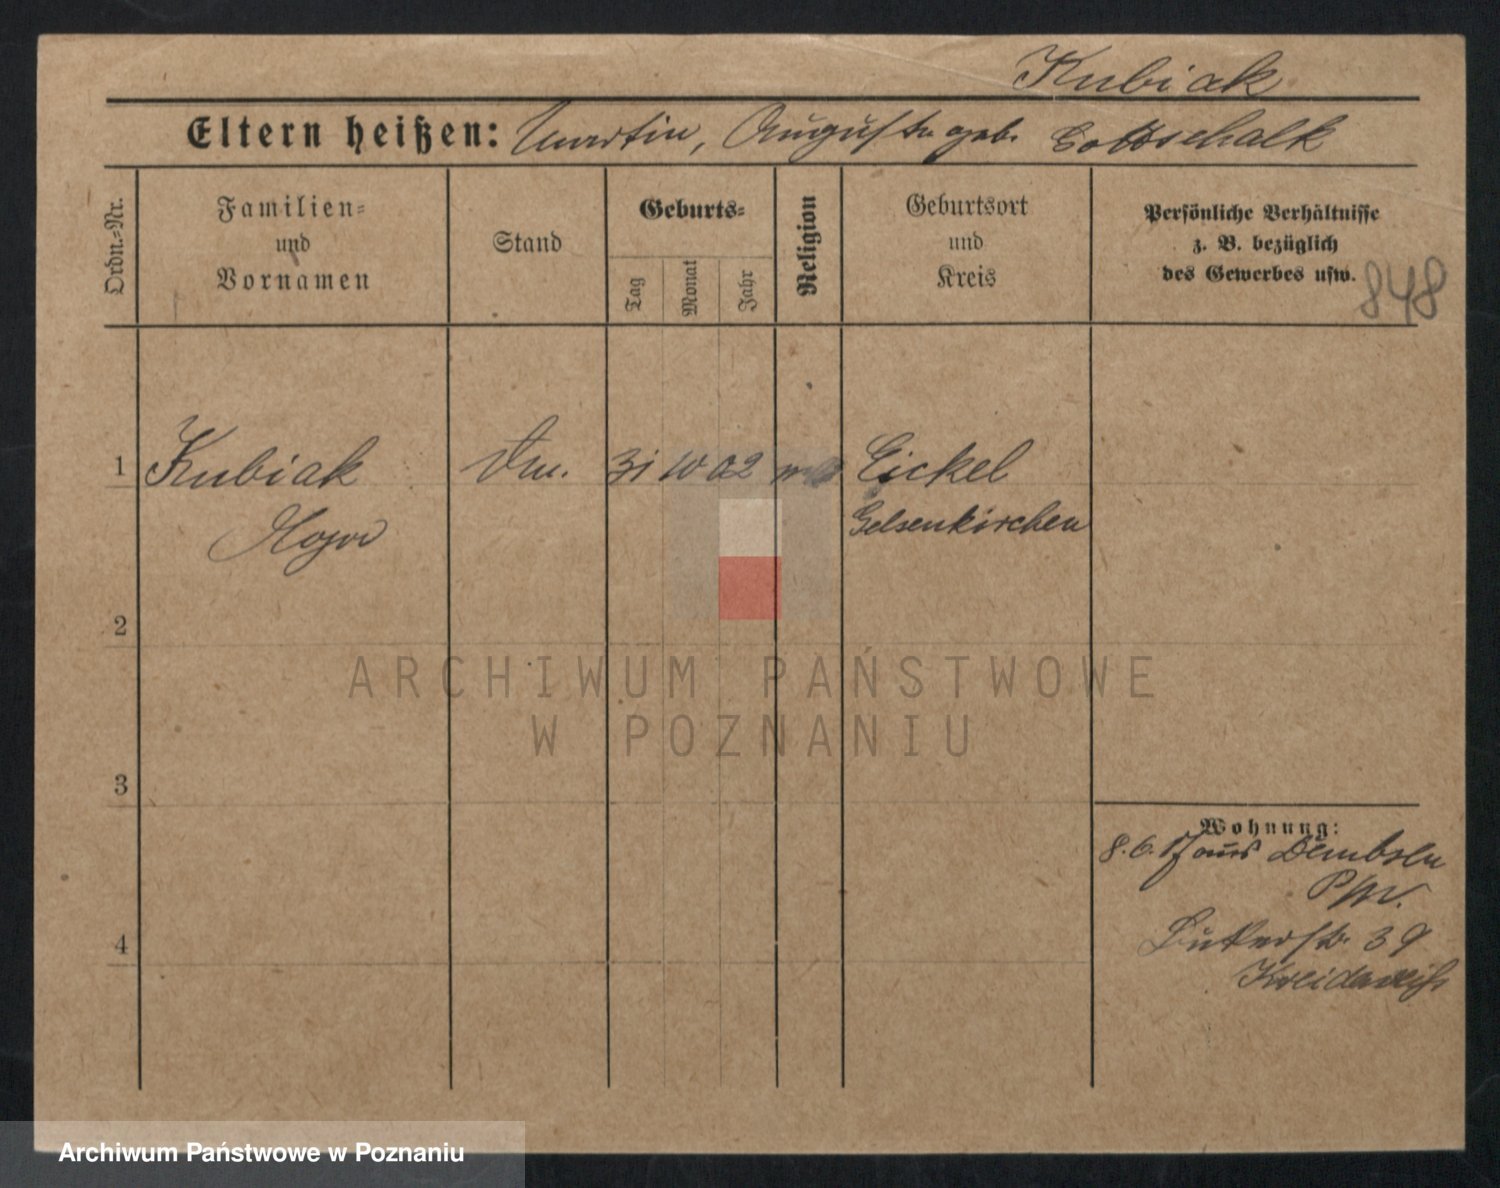 Kubiak
Eltern heißen: Martin, Auguste geb. Gottschalk
Ordn.=Nr.
Familien=
und
Vornamen
Stand
Geburts=
Tag
Monat
Jahr
Religion
Geburtsort
und
Kreis
Persönliche Verhältnisse
z. B. bezüglich
des Gewerbes usw.
848
1 Kubiak 31 10 02 Eickel
Gelsenkirchen
2
3
4
Wohnung:
8.6.17 aus Dembsen
P/W.
39
ARCHIWUM PAŃSTWOWE
W POZNANIU
Archiwum Państwowe w Poznaniu